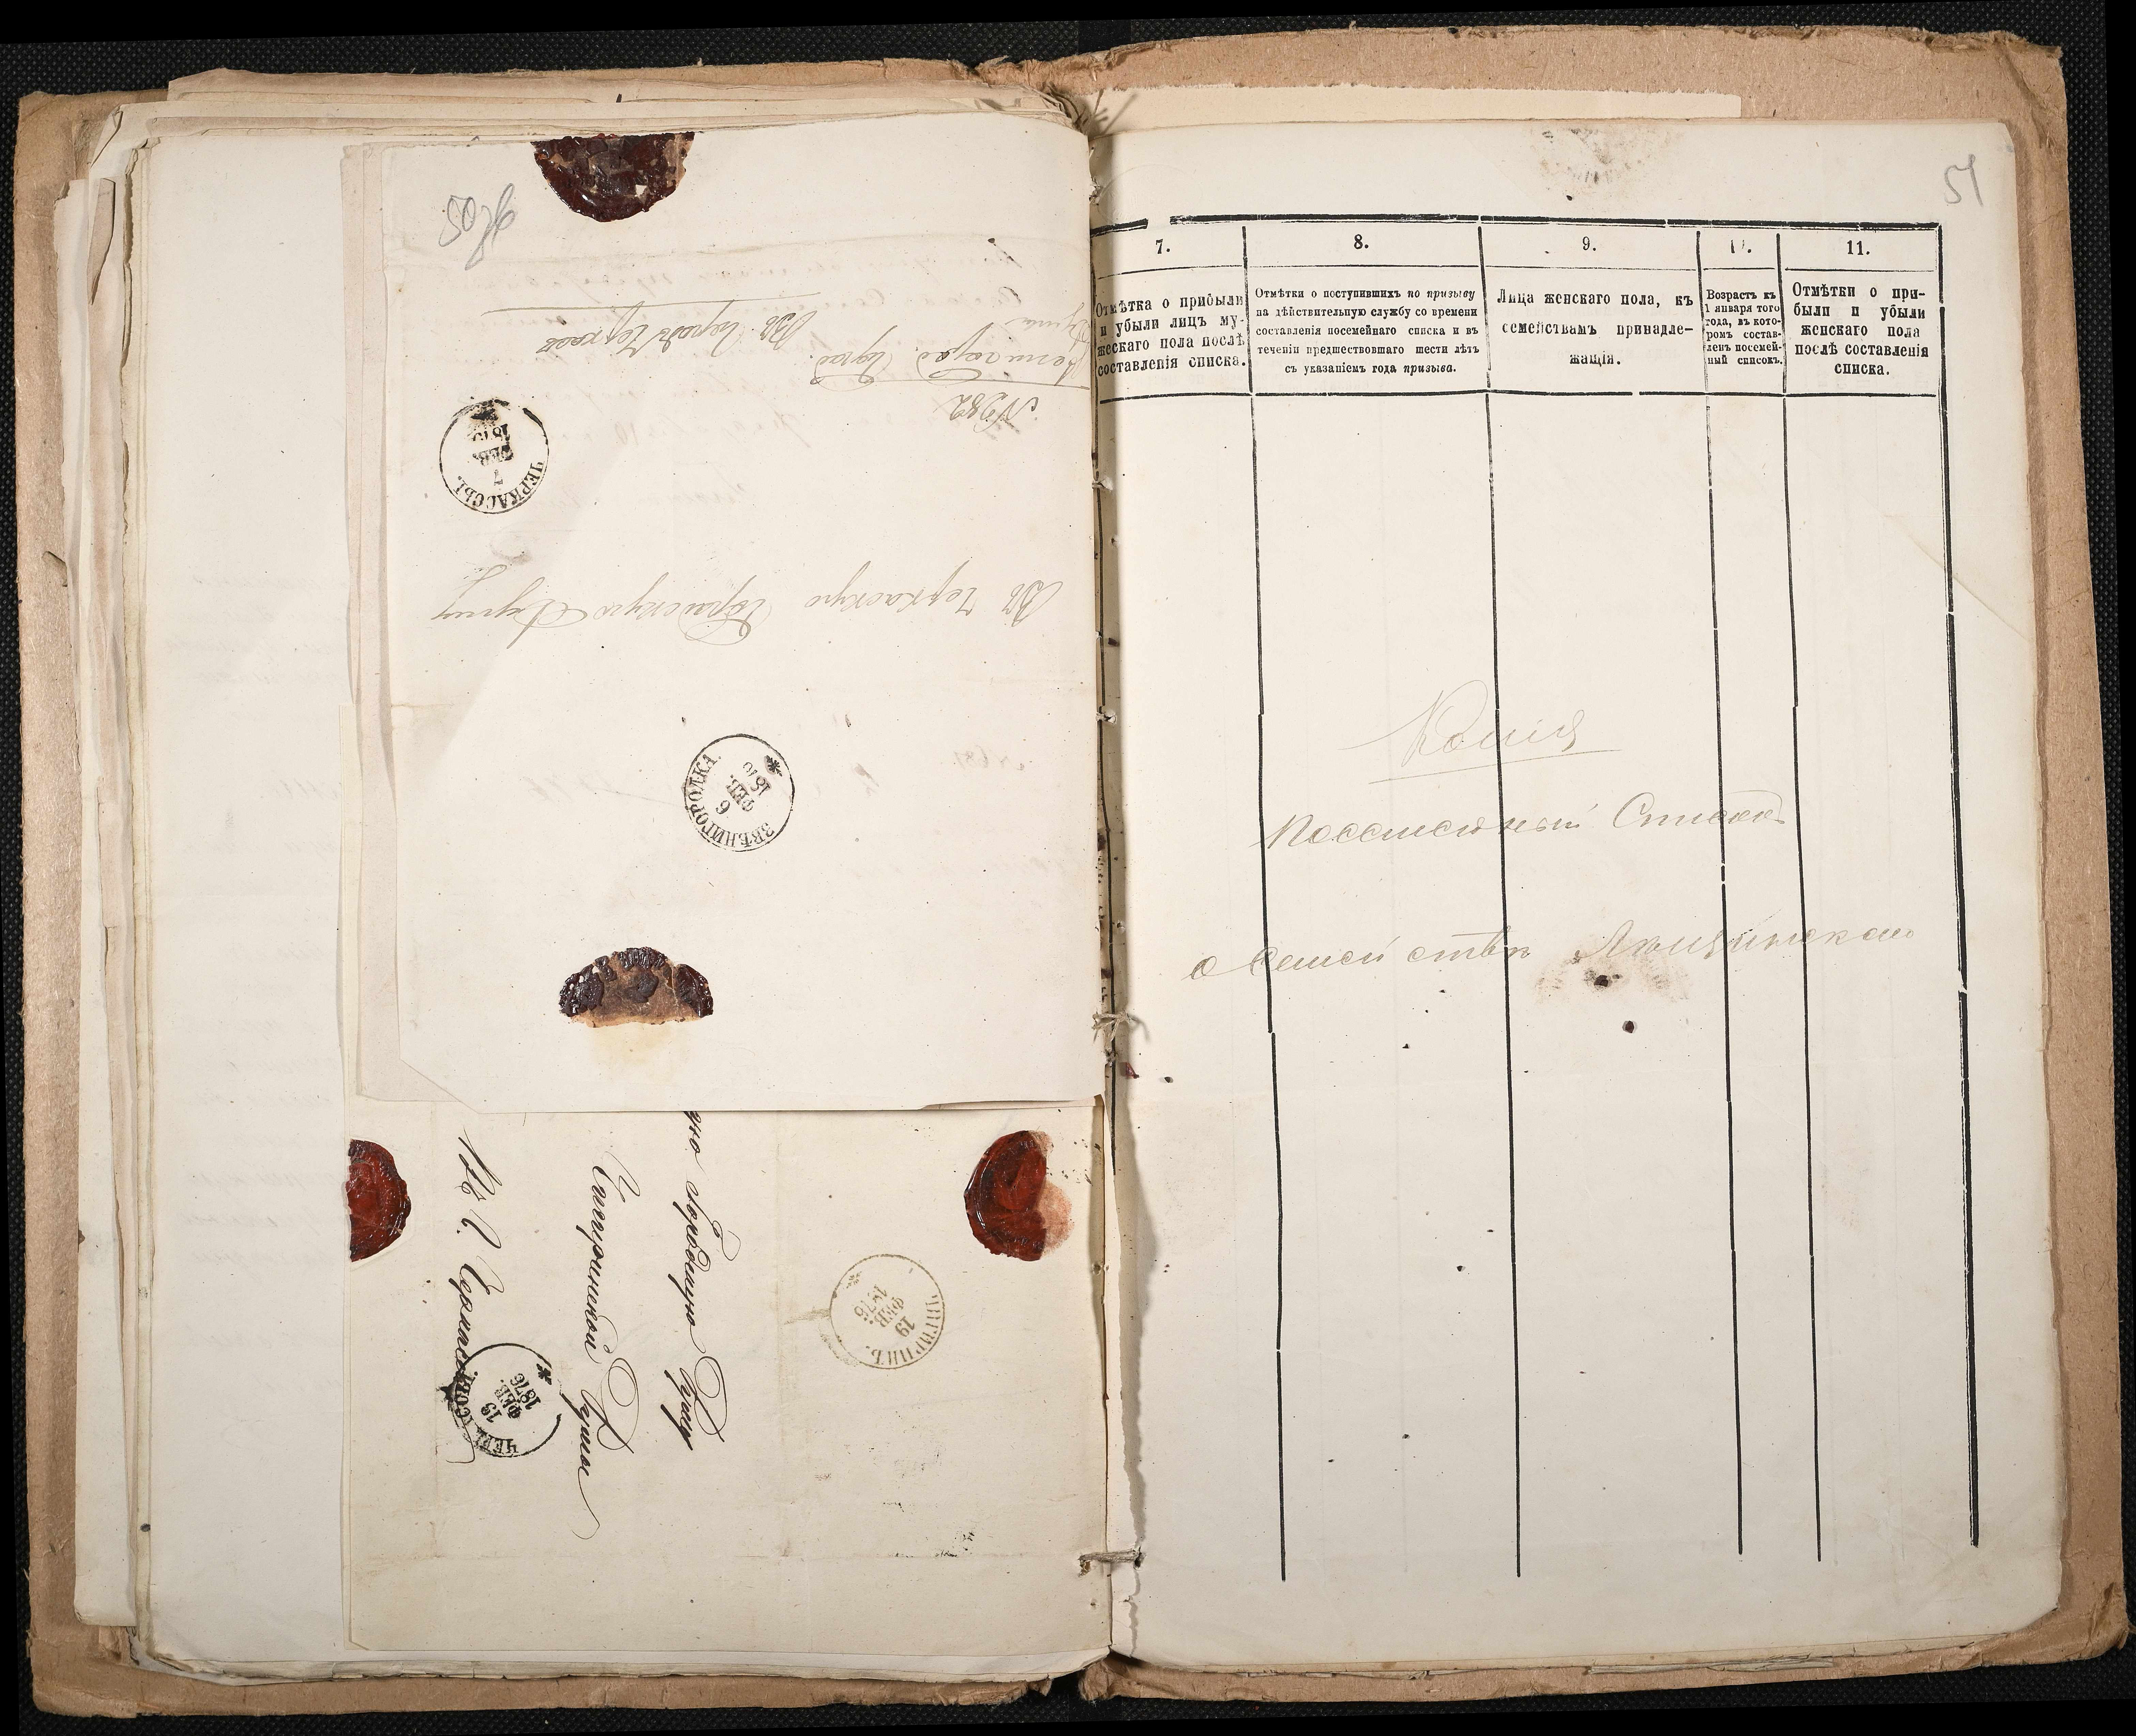 Въ Черкаскую Городскую Думу
№ 282
Въ городъ Черкасы
ЧЕРКАССЫ.
7
ФЕВ.
1876
ЗВѢНИГОРОДКА.
6
ФЕВ.
1876
ую Городскую Думу
Чигиринской Думы
Въ г. Черкасы
ЧЕРКАССЫ
ФЕВ.
1876
ЧИГИРИНЪ.
19
ФЕВ
1876
51
7.
8.
9.
11.
Отмѣтка о прибыли
и убыли лицъ му-
жескаго пола послѣ
составленія списка.
Отмѣтки о поступившихъ по призыву
на дѣйствительную службу со времени
составленія посемейнаго списка и въ
теченіи предшествовшаго шести лѣтъ
съ указаніемъ года призыва.
Лица женскаго пола, къ
семействамъ принадле-
жащія.
Возрастъ къ
1 января того
года, въ кото-
ромъ состав-
ленъ посемей-
ный списокъ.
Отмѣтки о при-
были и убыли
женскаго пола
послѣ составленія
списка.
Копія
Посемейный Списокъ
о Семействѣ